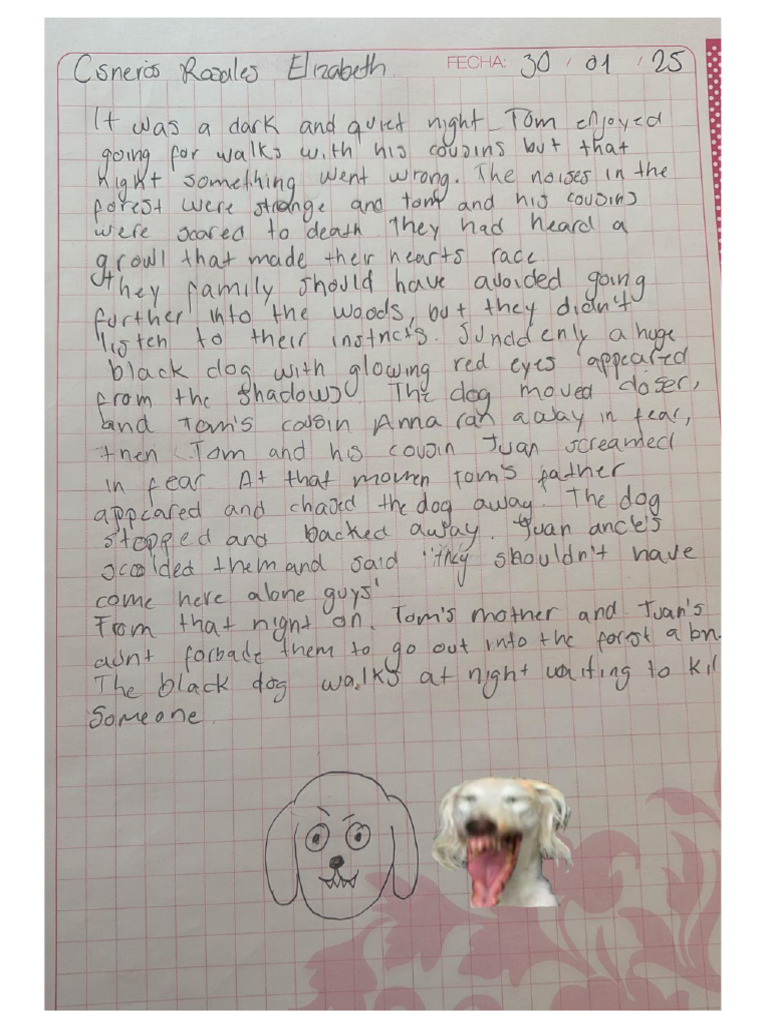 Cisneros Rosales Elizabeth FECHA: 30 / 01 / 25
It was a dark and quiet night. Tom enjoyed
going for walks with his cousins but that
night something went wrong. The noises in the
forest were strange and tom and his cousins
were scared to death They had heard a
growl that made their hearts race
they family should have avoided going
further into the woods, but they didn't
listen to their instncts. Sunddenly a huge
black dog with glowing red eyes appeared
from the shadows. The dog moved closer,
and Tom's cousin Anna ran away in fear,
then Tom and his cousin Juan screamed
in fear At that momen Tom's father
appeared and chased the dog away. The dog
stopped and backed away. Juan ancle's
scolded them and said "they shouldn't have
come here alone guys"
From that night on, Tom's mother and Juan's
aunt forbade them to go out into the forest
The black dog walks at night waiting to kil
Someone.